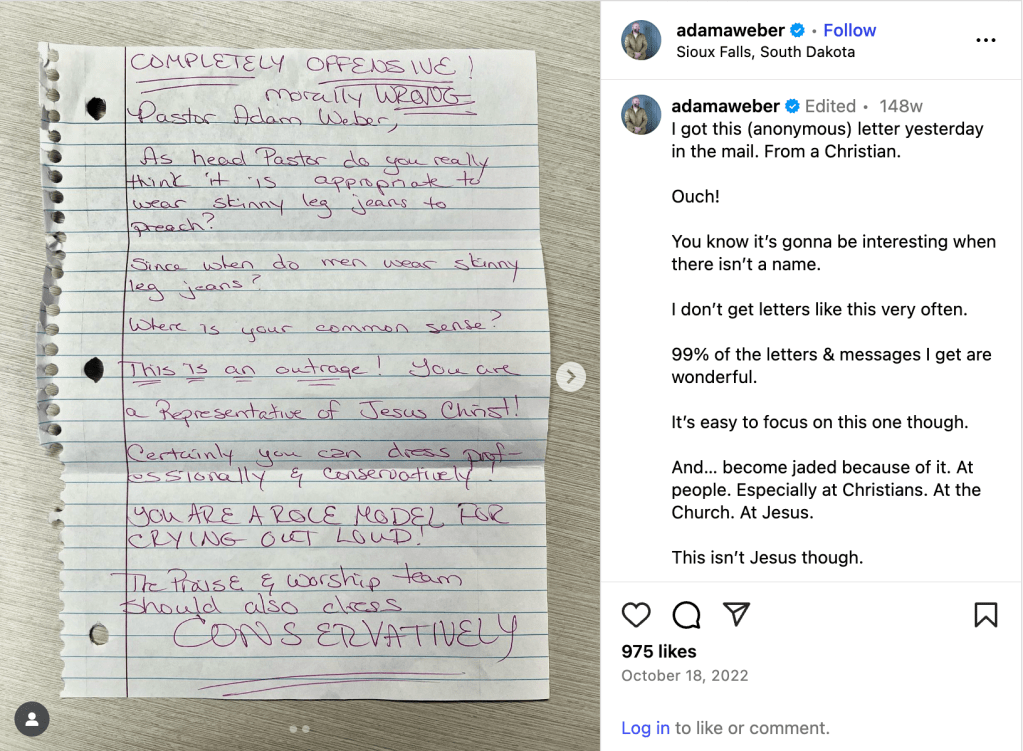 COMPLETELY OFFENSIVE!
morally WRONG
Pastor Adam Weber,
As head Pastor do you really
think it is appropriate to
wear skinny leg jeans to
preach?
Since when do men wear skinny
leg jeans?
Where is your common sense?
This is an outrage! You are
a Representative of Jesus Christ!
Certainly you can dress prof-
essionally & conservatively!
YOU ARE A ROLE MODEL FOR
CRYING OUT LOUD!
The Praise & worship team
should also dress
CONSERVATIVELY
adamaweber • Follow
Sioux Falls, South Dakota
adamaweber Edited • 148w
I got this (anonymous) letter yesterday
in the mail. From a Christian.
Ouch!
You know it’s gonna be interesting when
there isn’t a name.
I don’t get letters like this very often.
99% of the letters & messages I get are
wonderful.
It’s easy to focus on this one though.
And... become jaded because of it. At
people. Especially at Christians. At the
Church. At Jesus.
This isn’t Jesus though.
975 likes
October 18, 2022
Log in to like or comment.